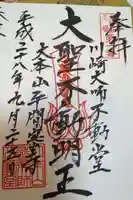 奉拝
川崎大師不動堂
大聖不動明王
大本山平間寺
平成二八年九月二十五日